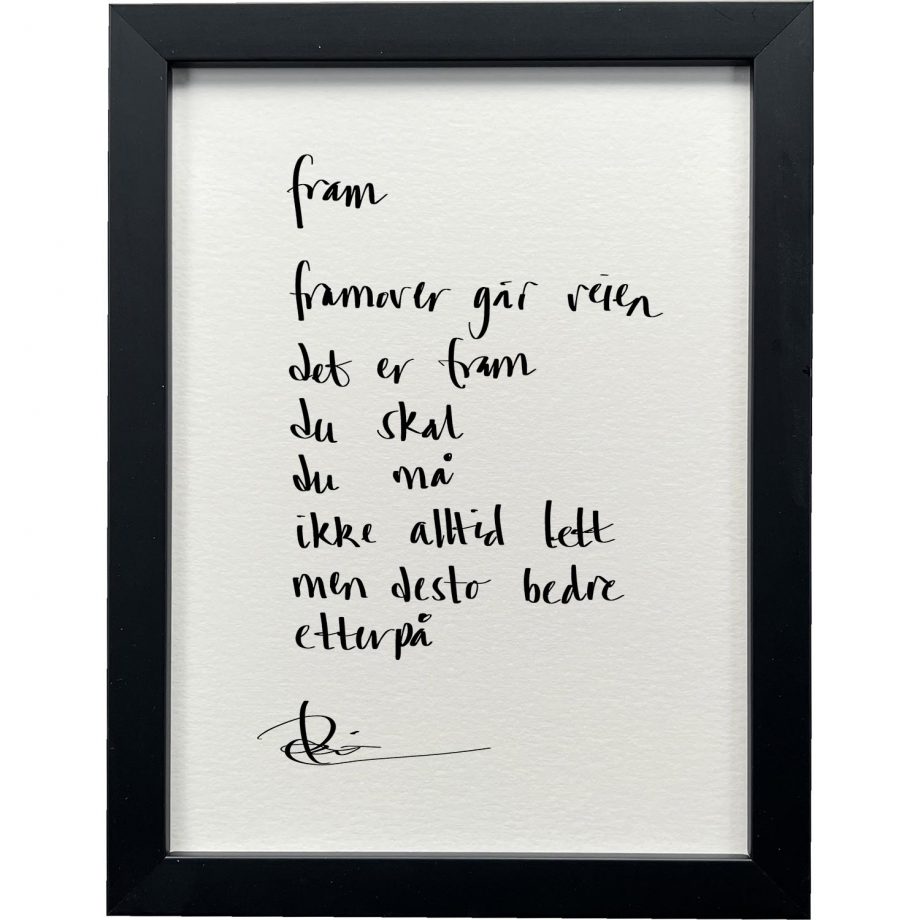 fram
framover går veien
det er fram
du skal
du må
ikke alltid lett
men desto bedre
etterpå